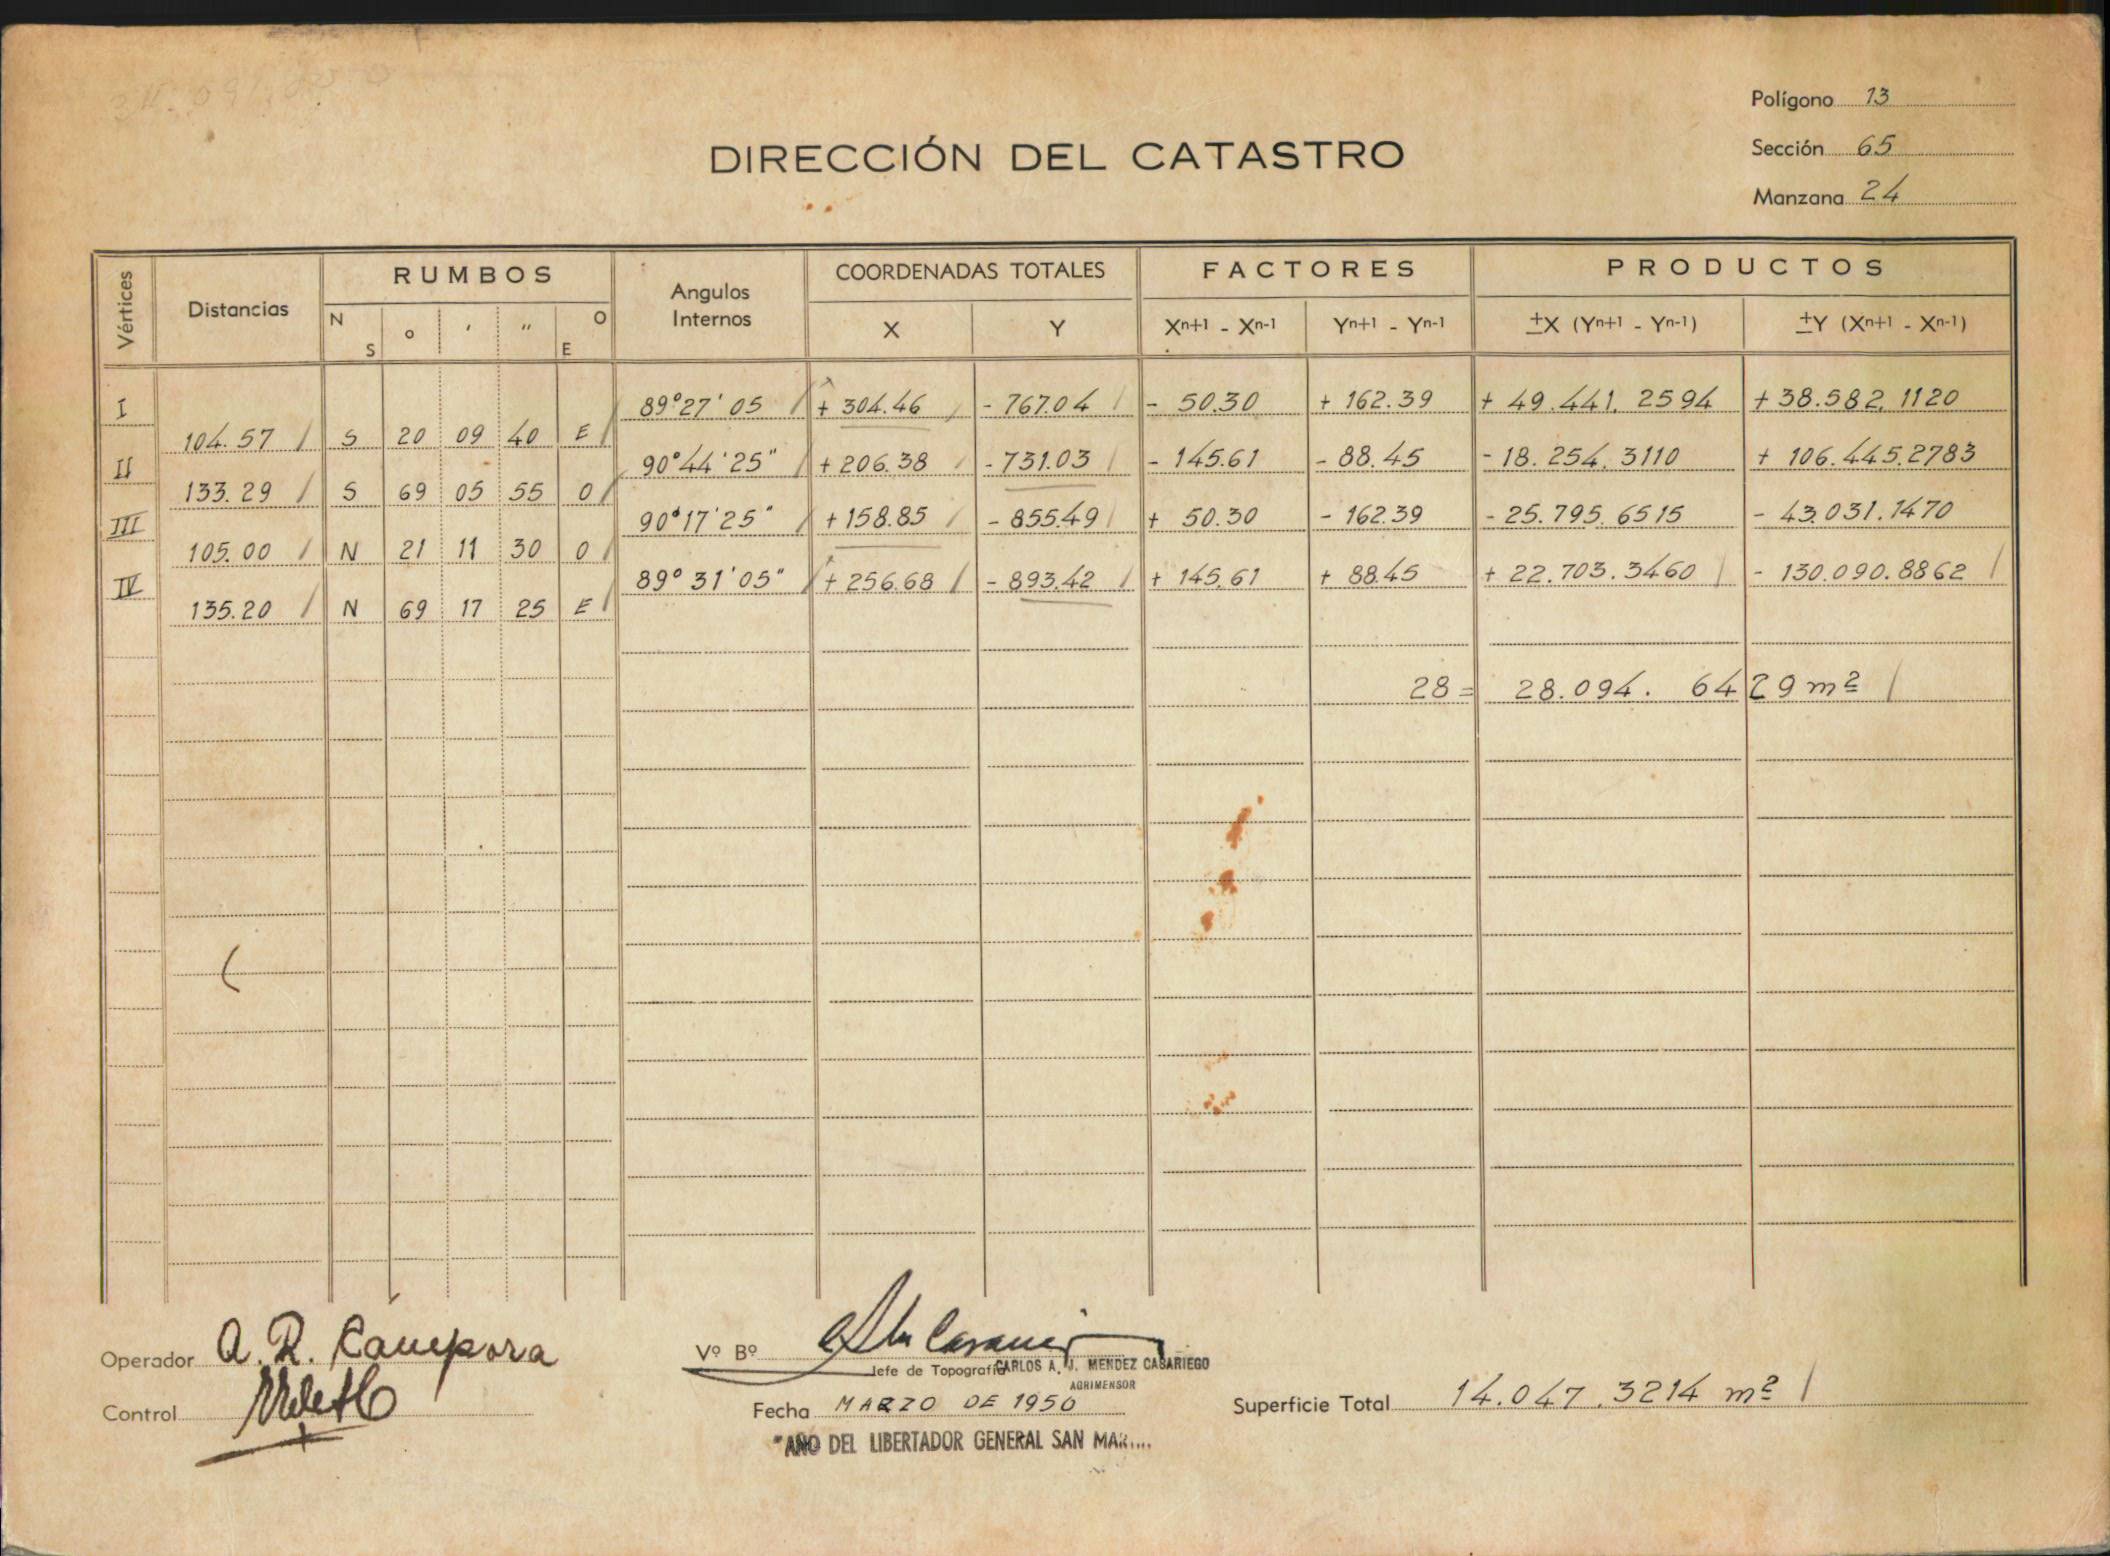 Polígono 13
DIRECCIÓN DEL CATASTRO
Sección 65
Manzana 24
Vértices
Distancias
RUMBOS
N S ° ' " O E
Angulos Internos
COORDENADAS TOTALES
X Y
FACTORES
Xn+1 - Xn-1 Yn+1 - Yn-1
PRODUCTOS
±X (Yn+1 - Yn-1) ±Y (Xn+1 - Xn-1)
I 89°27' 05 + 304.46 - 767.04 - 50.30 + 162.39 + 49.441.2594 + 38.582.1120
104.57 S 20 09 40 E
II 90°44'25" + 206.38 - 731.03 - 145.61 - 88.45 - 18.254.3110 + 106.445.2783
133.29 S 69 05 55 O
III 90°17'25" + 158.85 - 855.49 + 50.30 - 162.39 - 25.795.6515 - 43.031.1470
105.00 N 21 11 30 O
IV 89°31'05" + 256.68 - 893.42 + 145.61 + 88.45 + 22.703.3460 - 130.090.8862
135.20 N 69 17 25 E
2S = 28.094.6429 m²
Operador A. R. Campora
Vº Bº
Jefe de Topografía CARLOS A. J. MENDEZ CASARIEGO
AGRIMENSOR
Control
Fecha MARZO DE 1950
Superficie Total 14.047.3214 m²
"AÑO DEL LIBERTADOR GENERAL SAN MAR....